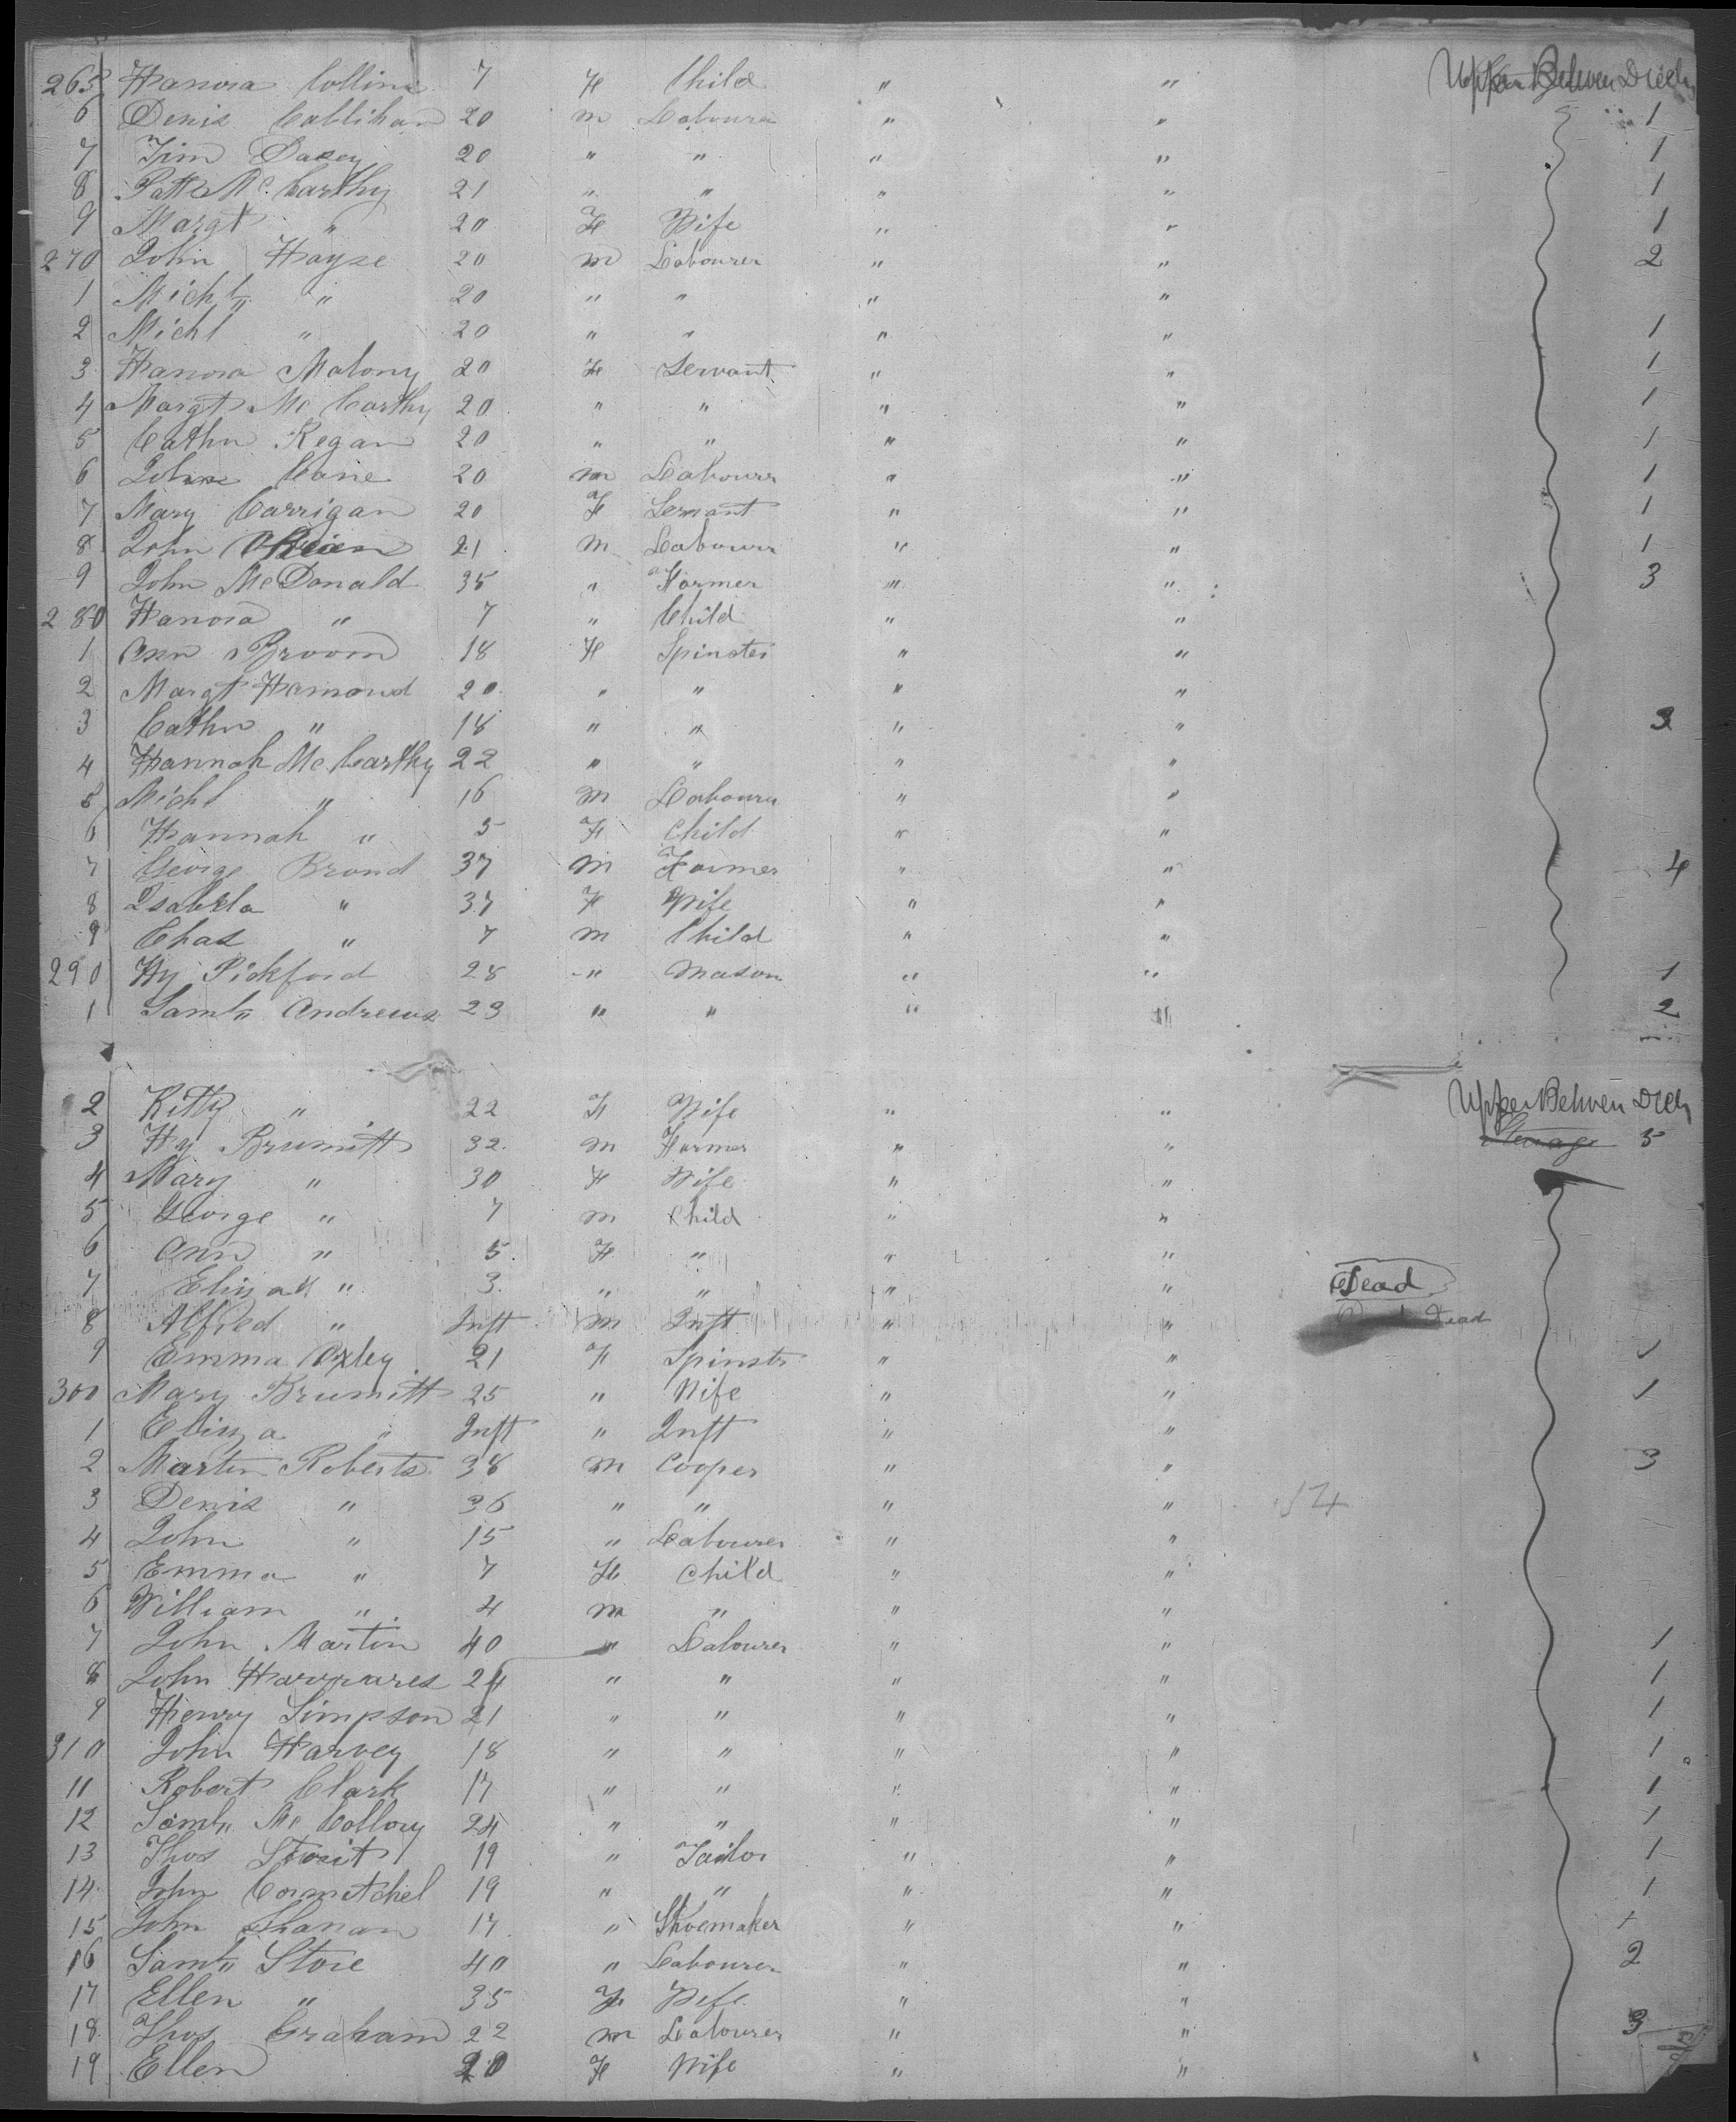 265 Hanora Collins 7 F Child " " Upper Between Deck
6 Denis Callihan 20 m Labourer " " 1
7 Tim Dasey 20 " " " " 1
8 Patk Mc Carthy 21 " " " " 1
9 Margt " 20 F Wife " " 1
270 John Hayse 20 m Labourer " " 2
1 Michl " 20 " " " "
2 Michl " 20 " " " " 1
3 Hanora Malony 20 F Servant " " 1
4 Margt Mc Carthy 20 " " " " 1
5 Cathn Regan 20 " " " " 1
6 John Cane 20 m Labourr " " 1
7 Mary Carrigan 20 F Servant " " 1
8 John OBrien 21 m Labourr " " 1
9 John McDonald 35 " Farmer " " 3
280 Hanora " 7 " Child " "
1 Ann Broom 18 F Spinster " "
2 Margt Hamond 20 " " " "
3 Cathn " 18 " " " " 3
4 Hannah Mc Carthy 22 " " " "
5 Michl " 16 m Labourer " "
6 Hannah " 5 F Child " "
7 George Brond 37 m Farmer " " 4
8 Isabela " 37 F Wife " "
9 Chas " 7 m Child " "
290 Hy Pickford 28 " Mason " " 1
1 Saml Andrews 23 " " " " 2
2 Kitty " 22 F Wife " " Upper Between Deck
3 Hy Brumitt 32 m Farmer " " Steerage 5
4 Mary " 30 F Wife " "
5 George " 7 m Child " "
6 Ann " 5 F " " "
7 Elizath " 3 " " " " Dead
8 Alfred " Inft m Inft " " Dead
9 Emma Oxley 21 F Spinstr " " 1
300 Mary Brumitt 25 " Wife " " 1
1 Eliza " Inft " Inft " "
2 Martin Roberts 38 m Cooper " " 3
3 Denis " 36 " " " "
4 John " 15 " Labourer " "
5 Emma " 7 F Child " "
6 William " 4 m " " "
7 John Martin 40 " Labourer " " 1
8 John 24 " " " " 1
9 Henry Simpson 21 " " " " 1
310 John Harvey 18 " " " " 1
11 Robert Clark 17 " " " " 1
12 Saml Mc Collory 24 " " " " 1
13 Thos 19 " Tailor " " 1
14 John Cormitchel 19 " " " " 1
15 John Shanan 17 " Shoemaker " "
16 Saml Store 40 " Labourer " " 2
17 Ellen " 35 F Wife " "
18 Thos Graham 22 m Labourer " " 3
19 Ellen 20 F Wife " "